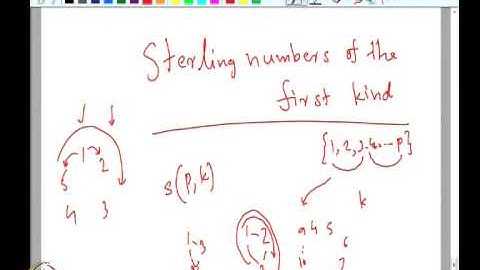 Sterling numbers of the
first kind
{1, 2, 3, 4, --- p}
s(p, k)
k
1 2
5
4 3
1-3
1-2
9 4 5
10
6
7